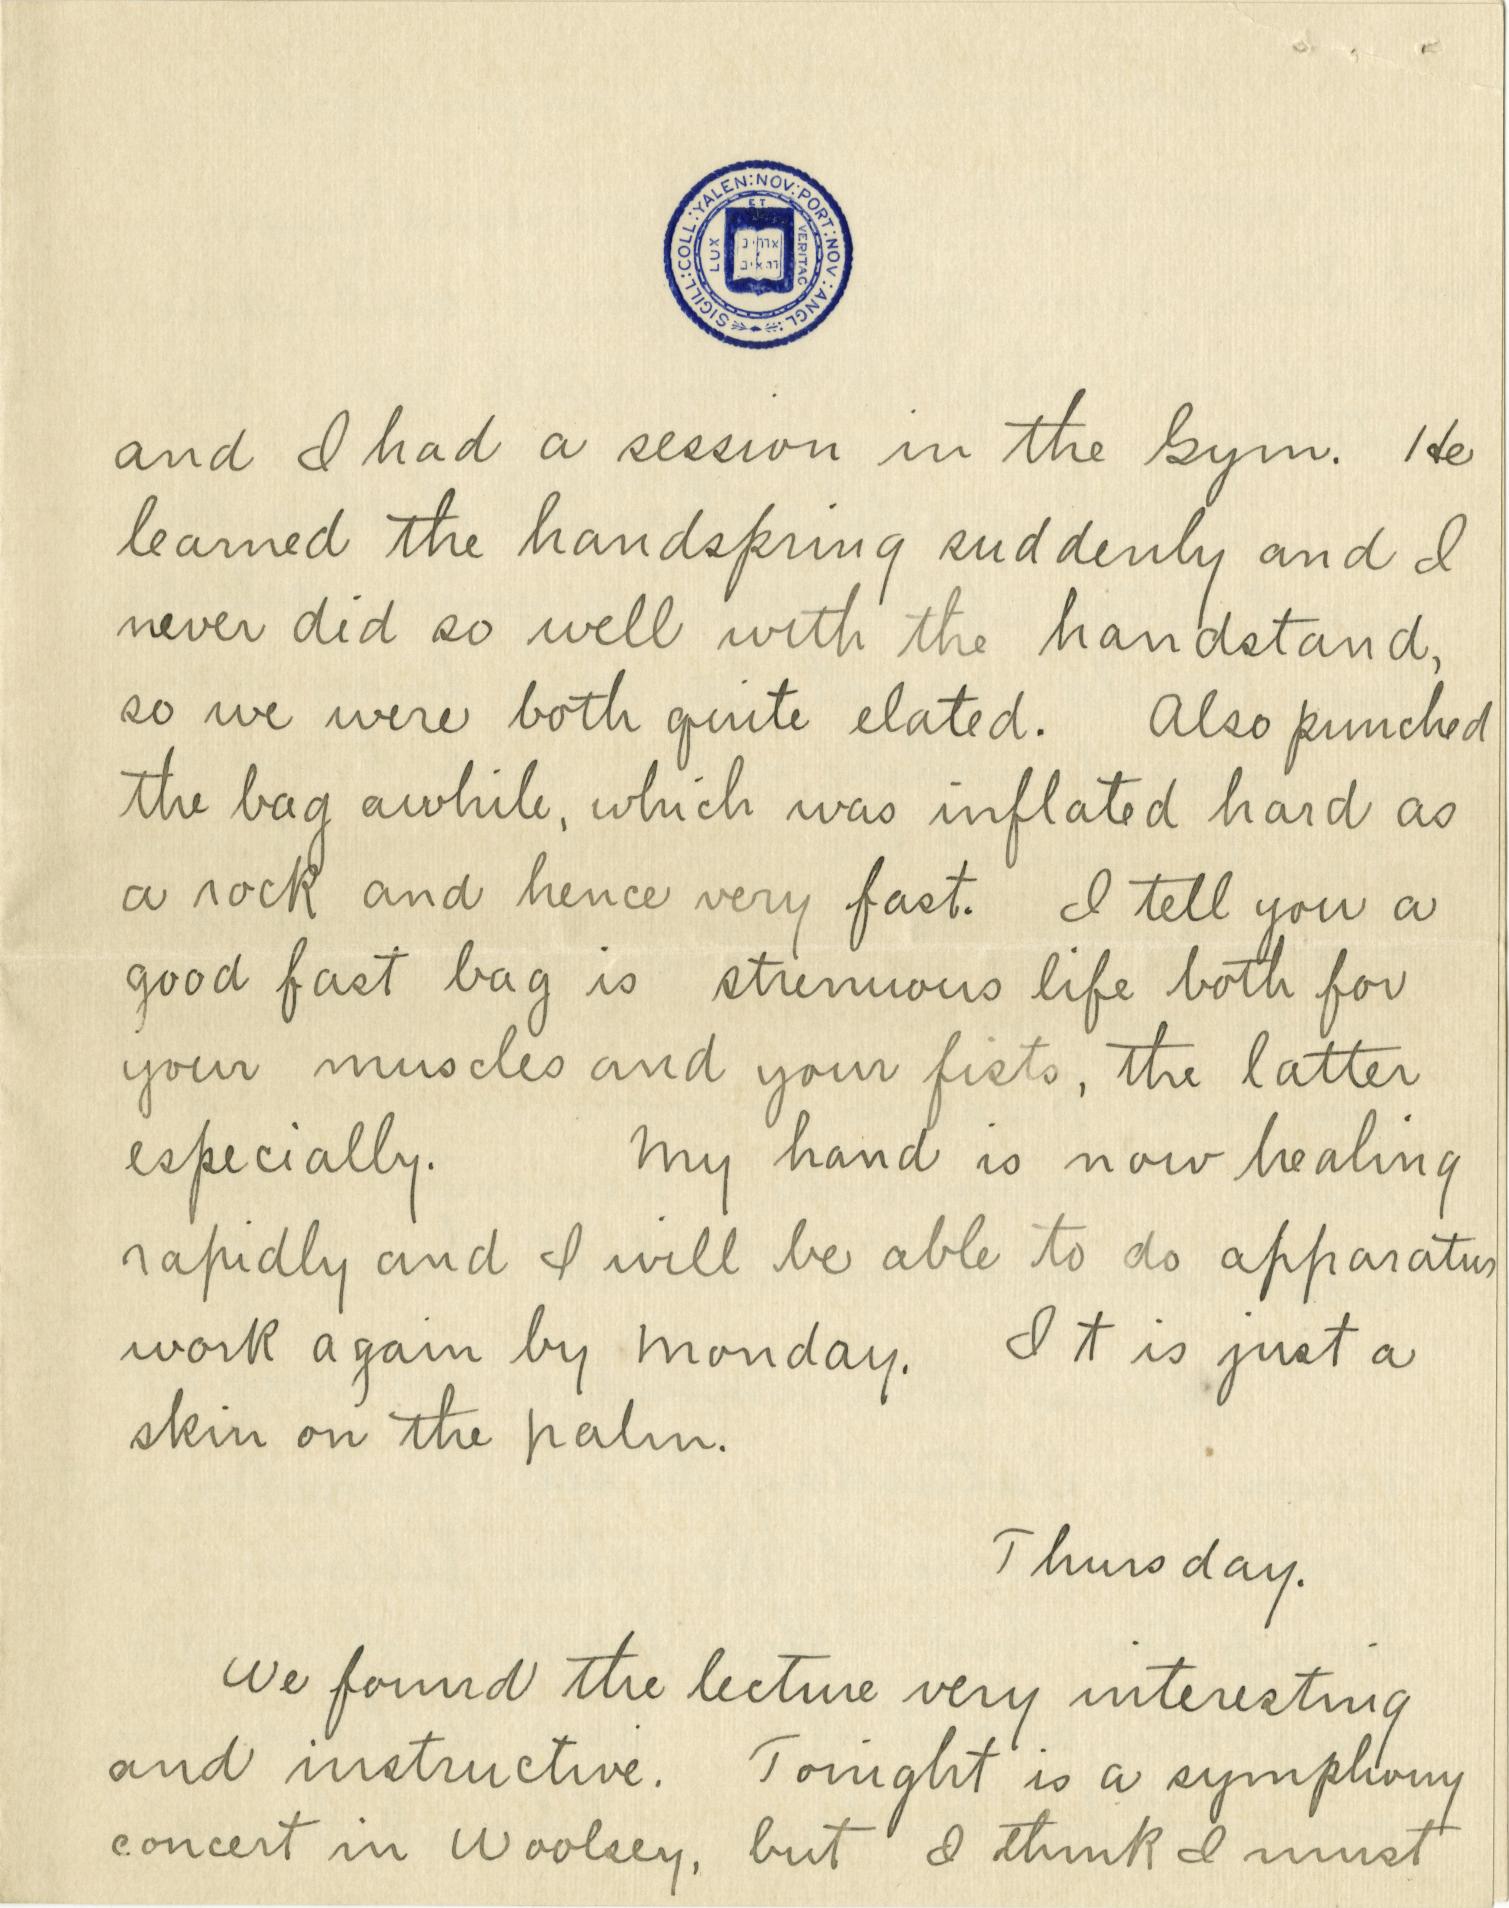 SIGILL:COLL:YALEN:NOV:PORT:NOV:ANGL:
ET
LUX
VERITAS
and I had a session in the Gym. He
learned the handspring suddenly and I
never did so well with the handstand,
so we were both quite elated. Also punched
the bag awhile, which was inflated hard as
a rock and hence very fast. I tell you a
good fast bag is strenuous life both for
your muscles and your fists, the latter
especially. My hand is now healing
rapidly and I will be able to do apparatus
work again by Monday. It is just a
skin on the palm.
Thursday.
We found the lecture very interesting
and instructive. Tonight is a symphony
concert in Woolsey, but I think I must